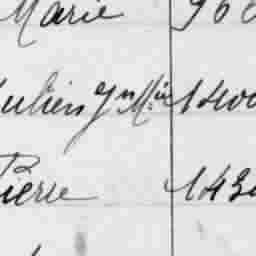 Marie 960
Julien Jn Mie 1400
Pierre 143